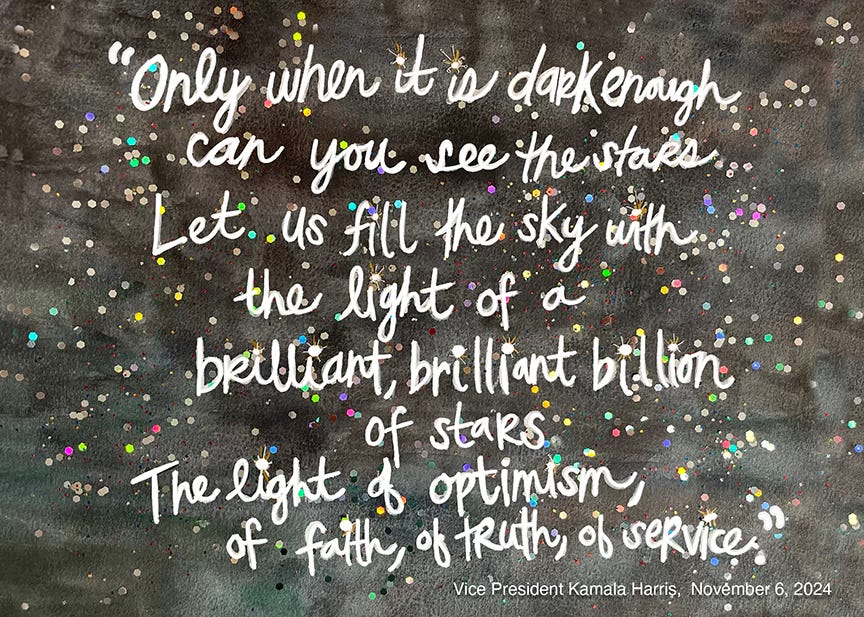 “Only when it is dark enough
can you see the stars
Let us fill the sky with
the light of a
brilliant, brilliant billion
of stars
The light of optimism,
of faith, of truth, of service.”
Vice President Kamala Harris, November 6, 2024